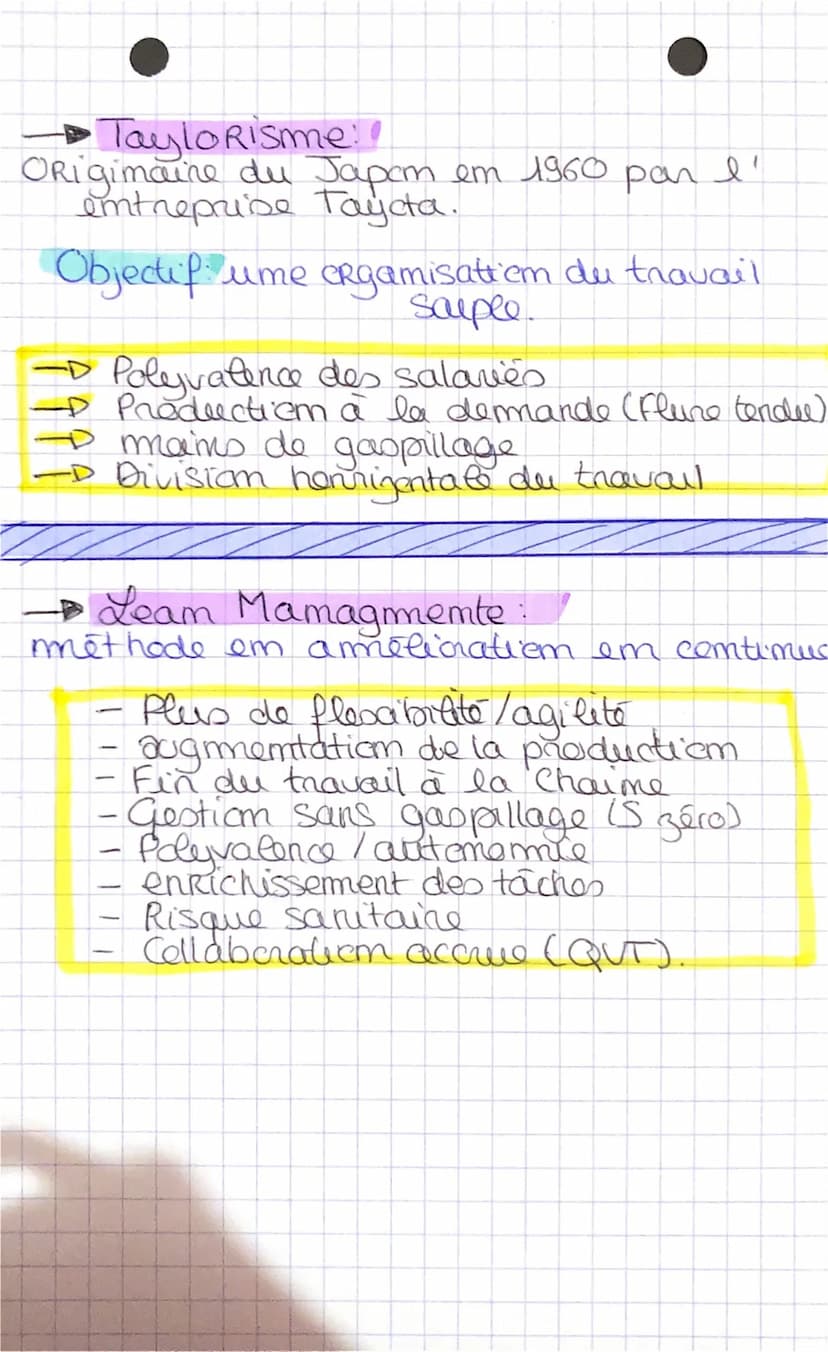 → Taylorisme:
Originaire du Japon en 1960 par l'
entreprise Tayota.
Objectif: une organisation du travail
souple.
→ Polyvalence des salariés
→ Production à la demande (Flune tendue)
→ moins de gaspillage
→ Division honrizontale du travail
→ Lean Managmente :
méthode en amélioration en continus
- Plus de flexibilité/agilité
- augmentation de la production
- Fin du travail à la chaine
- Gestion sans gaspillage (5 zéro)
- Polyvalence / autonomie
- enrichissement des tâches
- Risque sanitaire
- Collaboration accrue (QVT).